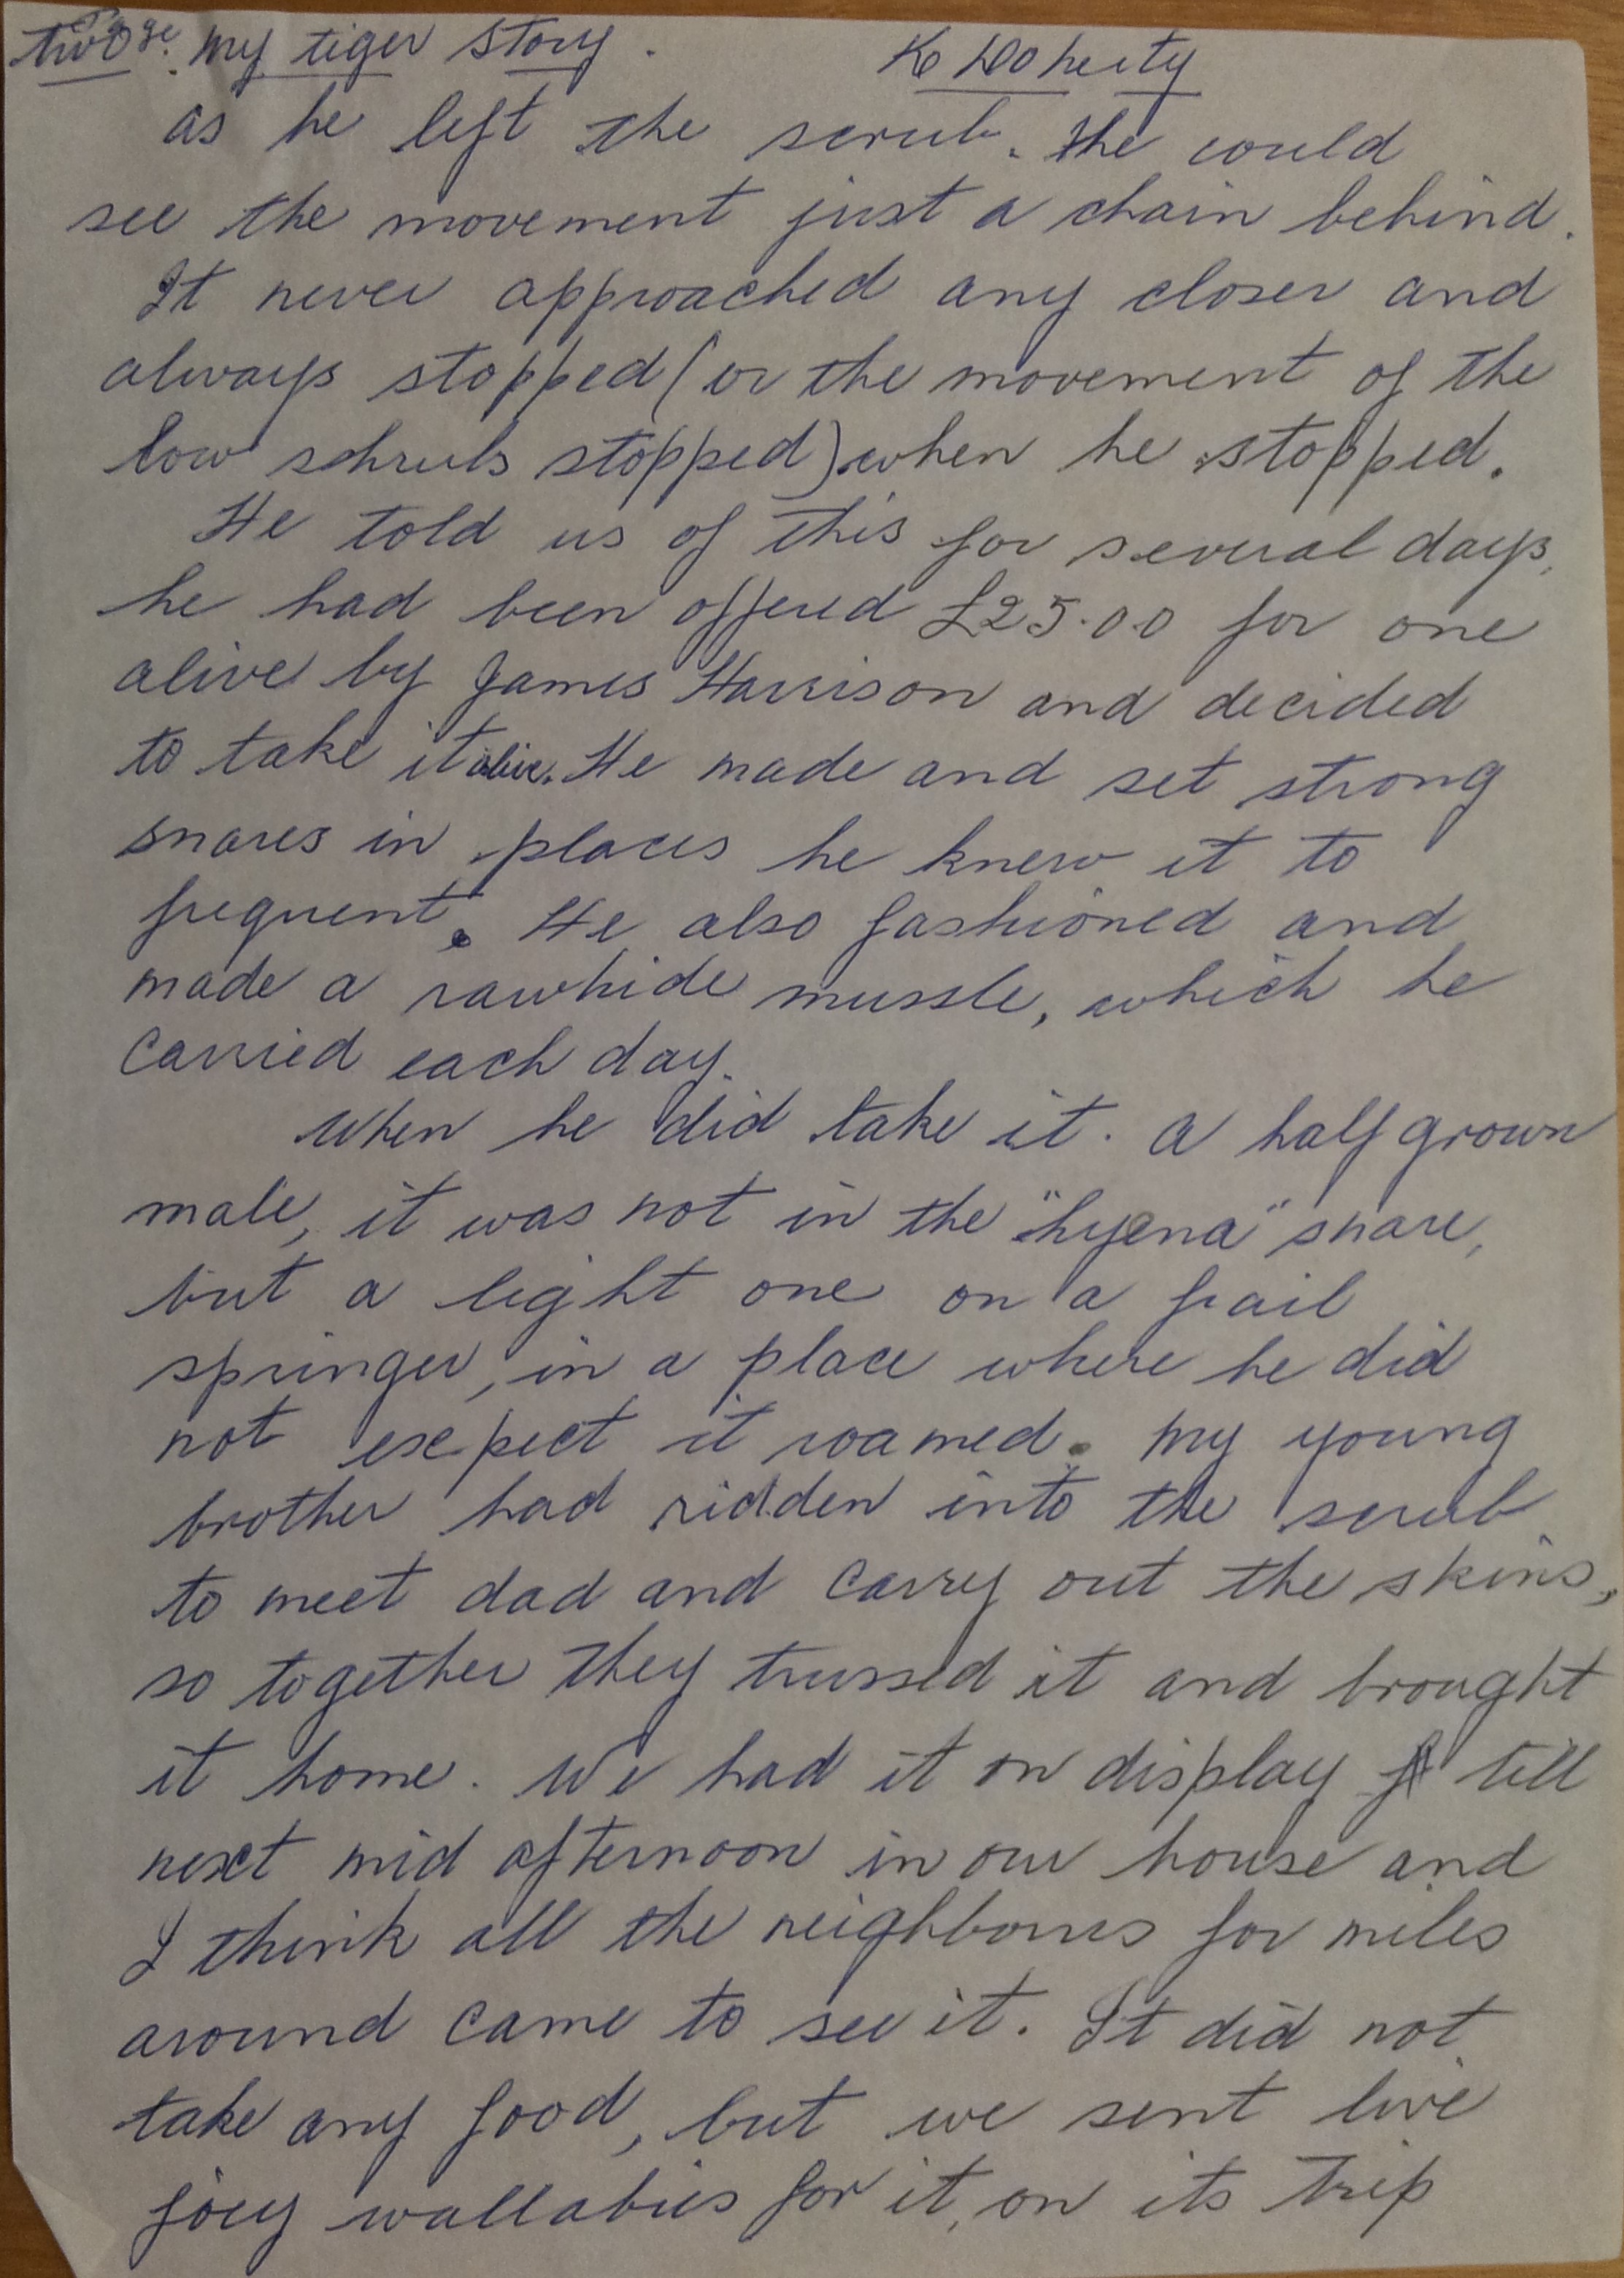 Page two. My tiger story. K Doherty
as he left the scrub. He could
see the movement just a chain behind.
It never approached any closer and
always stopped (or the movement of the
low schrubs stopped) when he stopped.
He told us of this for several days,
he had been offered £25.00 for one
alive by James Harrison and decided
to take it alive. He made and set strong
snares in places he knew it to
frequent. He also fashioned and
made a rawhide mussle, which he
carried each day.
When he did take it. a half grown
male, it was not in the "hyena" snare,
but a light one on a frail
springer, in a place where he did
not expect it roamed. My young
brother had ridden into the scrub
to meet dad and carry out the skins,
so together they trussed it and brought
it home. We had it on display till
next mid afternoon in our house and
I think all the neighbours for miles
around came to see it. It did not
take any food, but we sent live
joey wallabies for it, on its trip